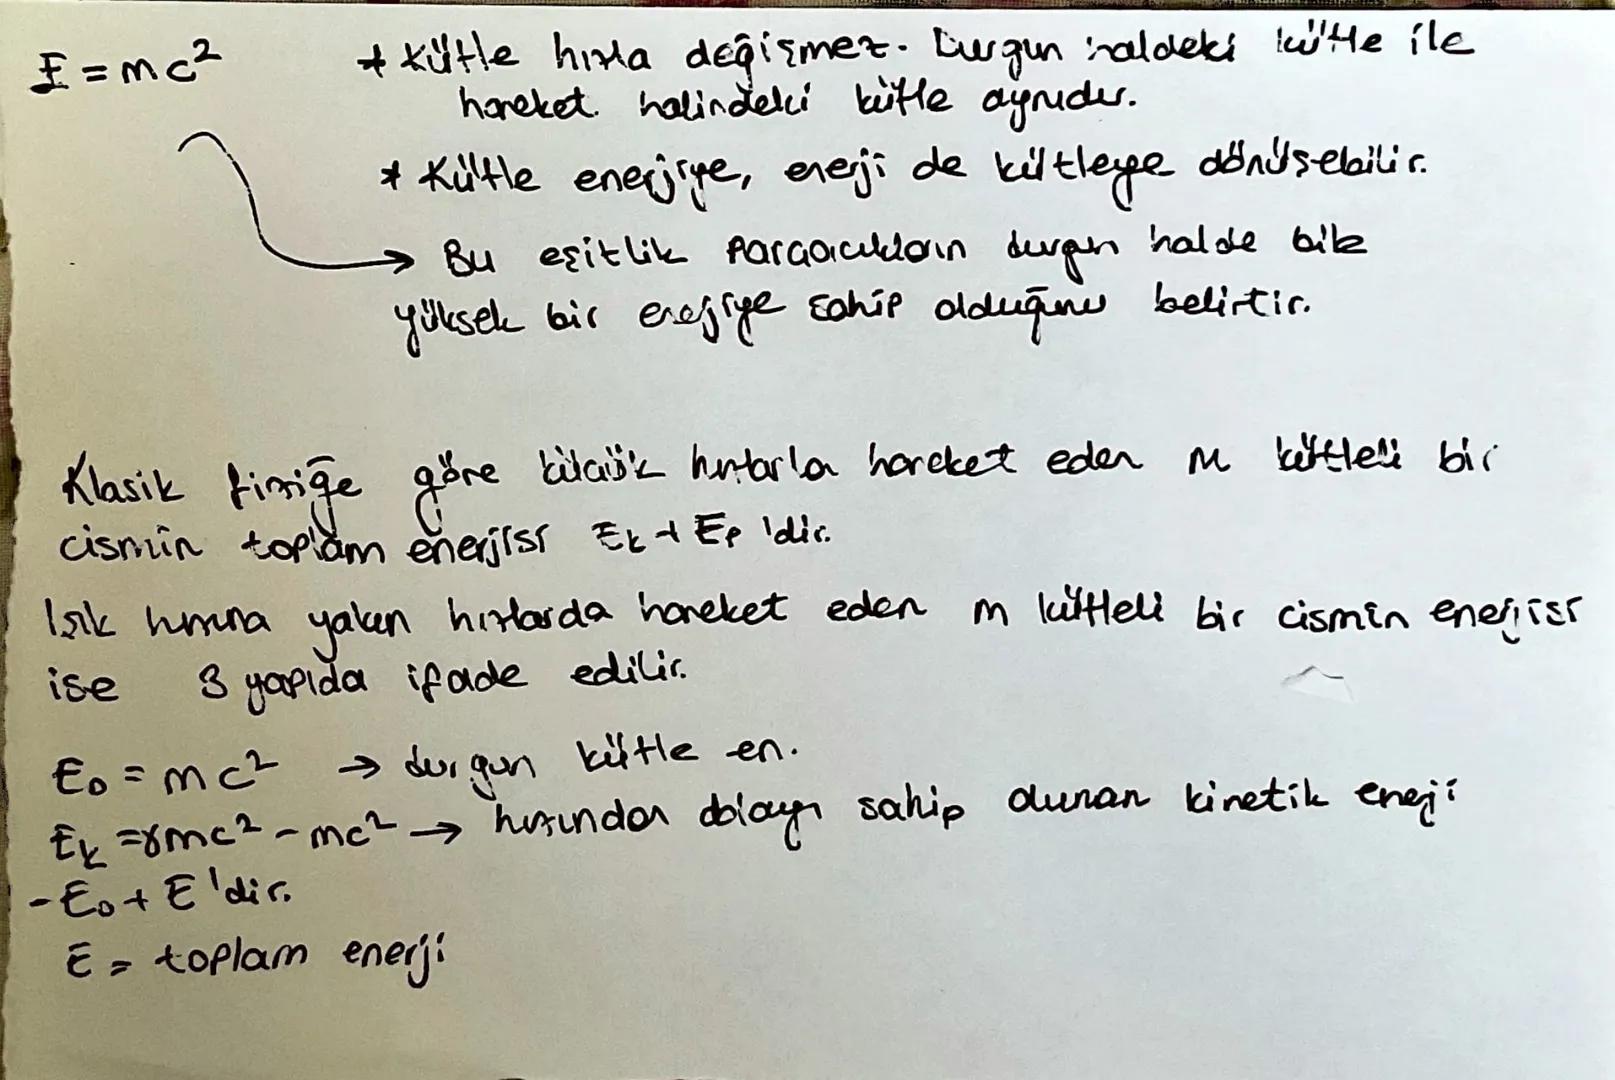 E = mc²
* Kütle hızla değişmez. Durgun haldeki kütle ile
hareket halindeki kütle aynıdır.
* Kütle enerjiye, enerji de kütleye dönüşebilir.
→ Bu eşitlik parçacıkların durgun halde bile
yüksek bir enerjiye sahip olduğunu belirtir.
Klasik fiziğe göre küçük hızlarla hareket eden m kütleli bir
cismin toplam enerjisi Ek + Ep 'dir.
Işık hızına yakın hızlarda hareket eden m kütleli bir cismin enerjisi
ise 3 yapıda ifade edilir.
E₀ = mc² → durgun kütle en.
Ek = γmc² - mc² → hızından dolayı sahip olunan kinetik enerji
- E₀ + E 'dir.
E = toplam enerji